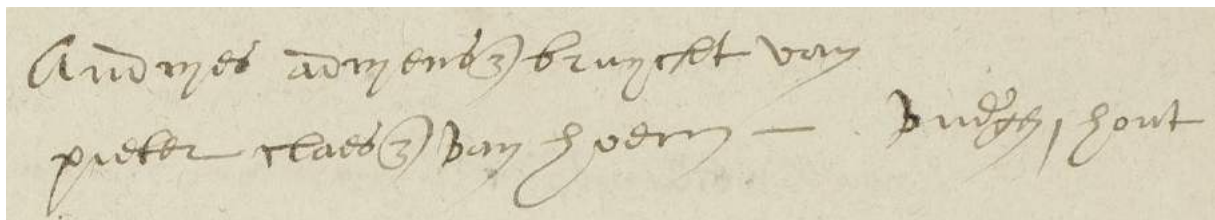 Andries adriensz bruyckt van
pieter claesz van hoern - hont